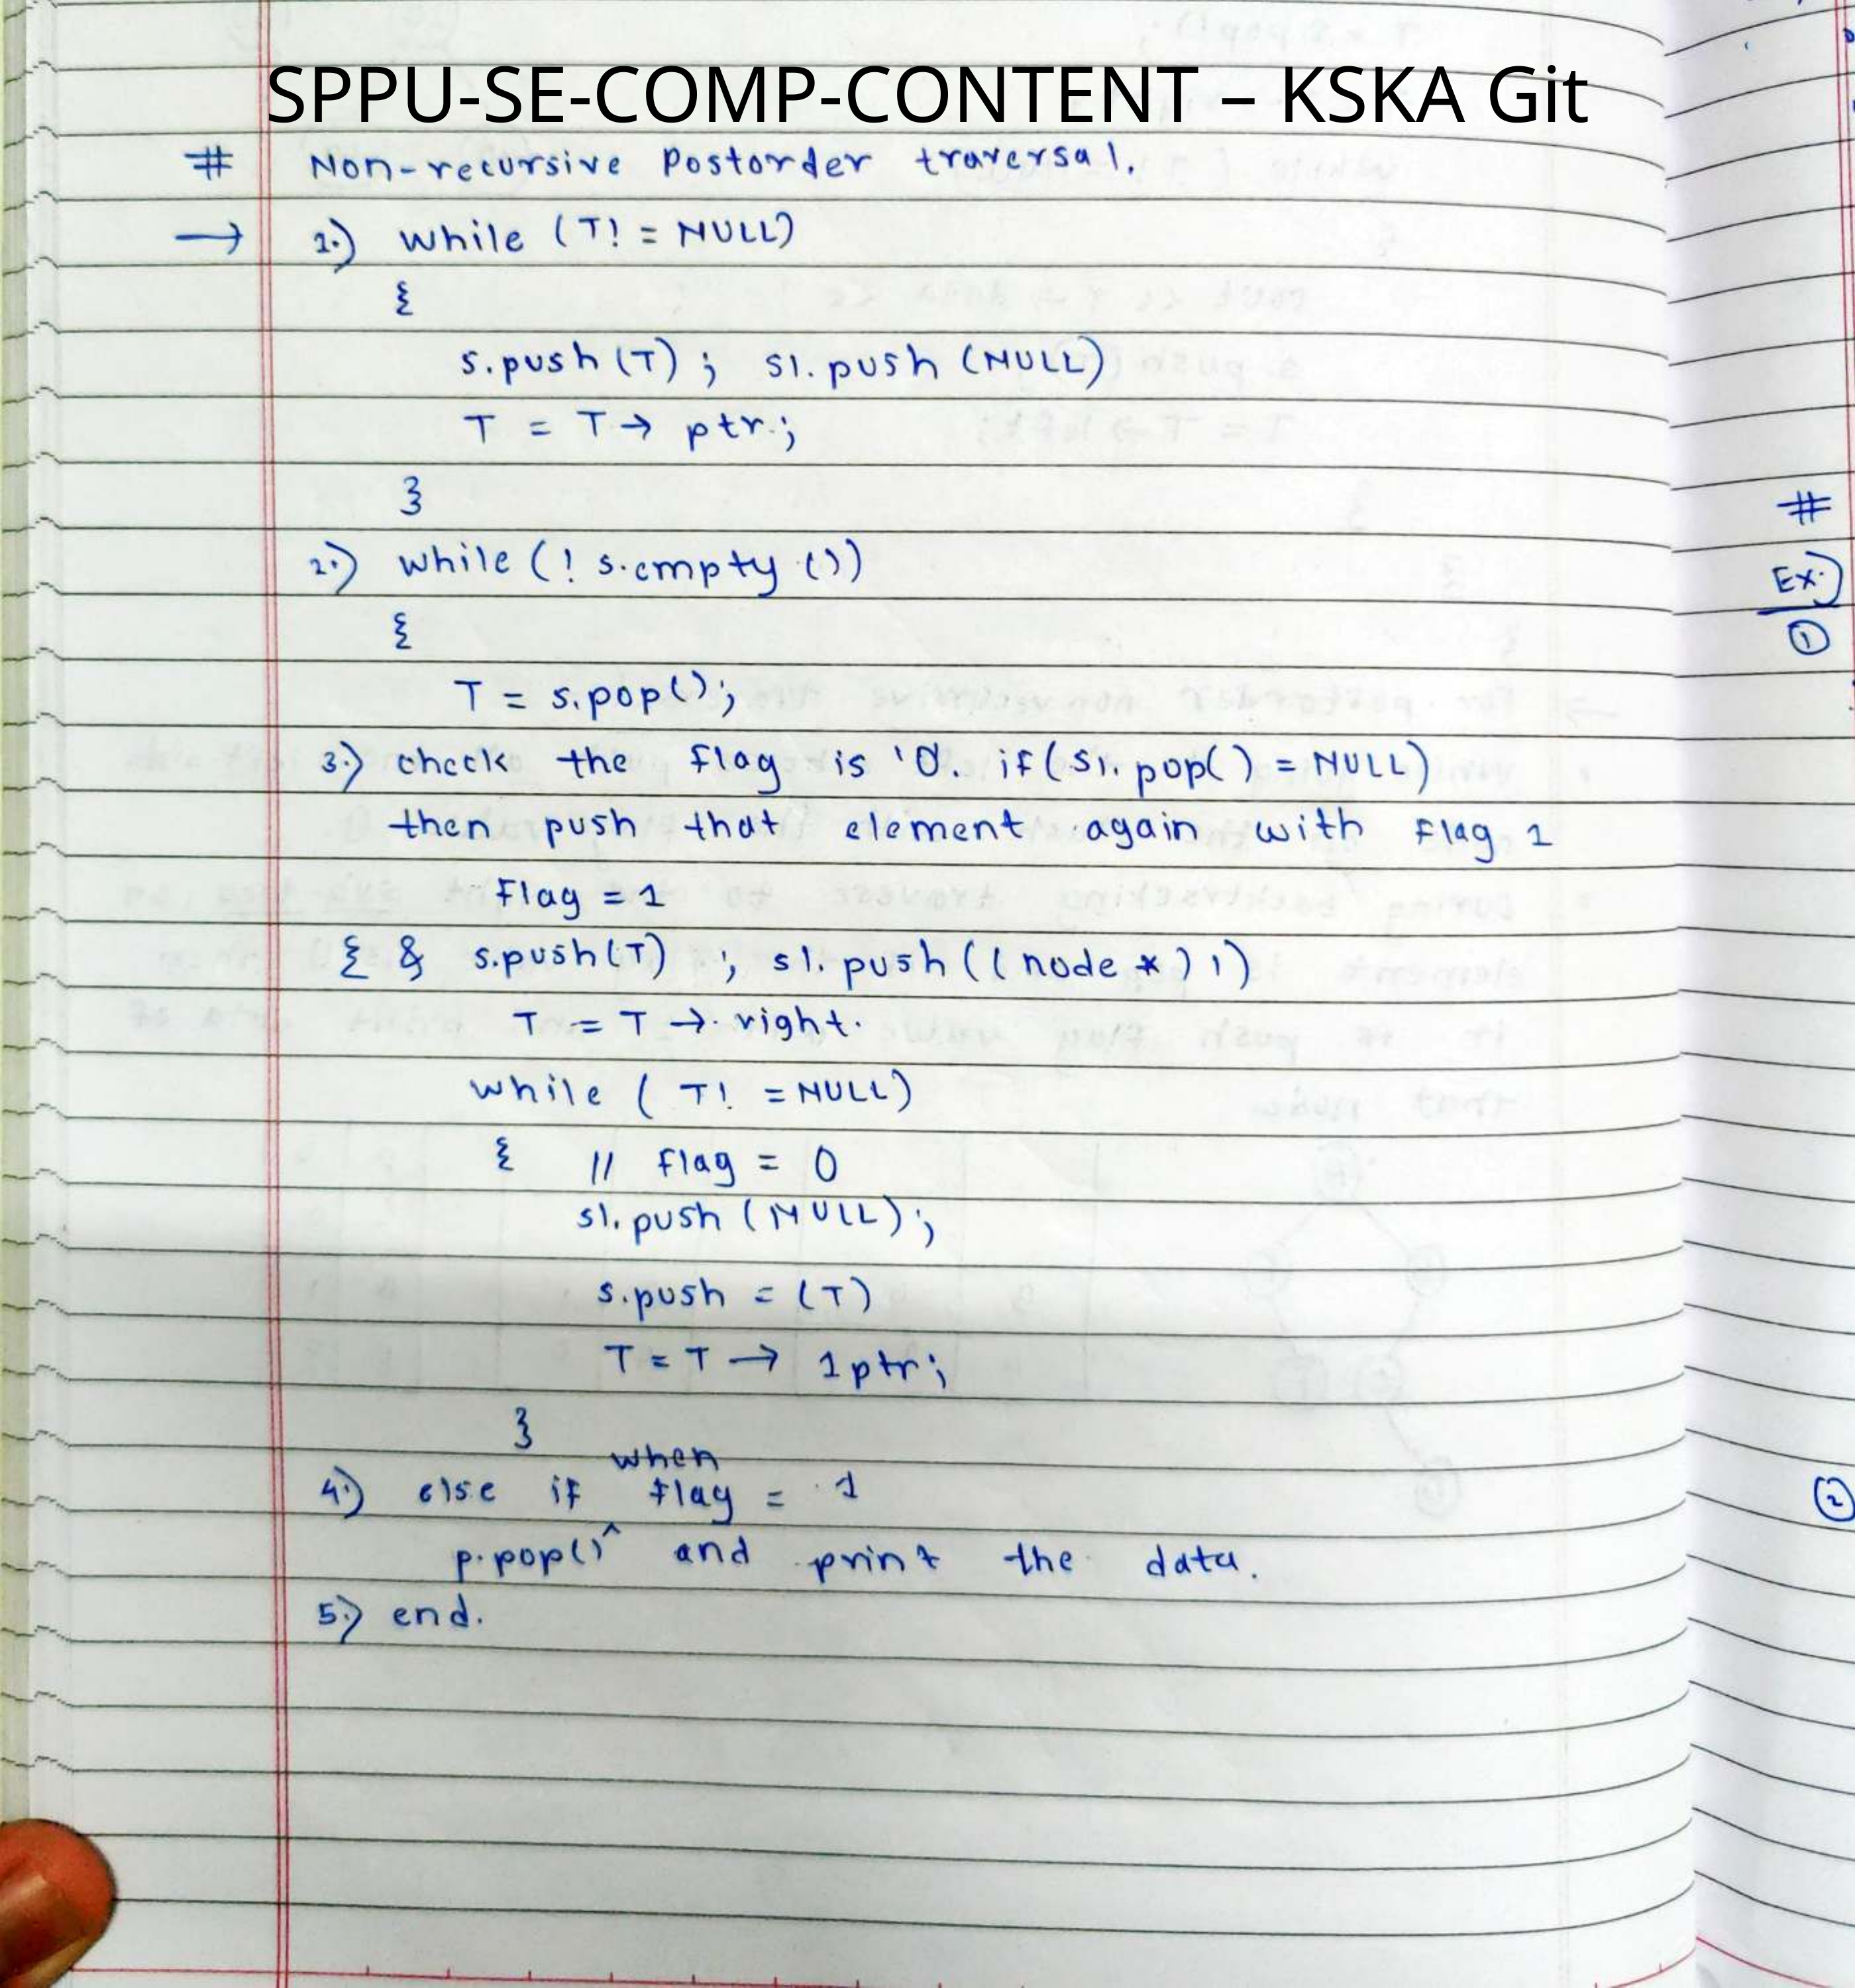 SPPU-SE-COMP-CONTENT – KSKA Git
# Non-recursive Postorder traversal.
→ 1.) while (T! = NULL)
{
s.push (T) ; s1. push (NULL)
T = T → ptr ;
}
2.) while ( ! s.empty ())
{
T = s.pop() ;
3.) check the flag is '0. if ( s1. pop( ) = NULL)
then push that element again with flag 1
flag = 1
{ & s.push(T) ; s1. push ( ( node * ) 1 )
T = T → right.
while ( T! = NULL)
{ // flag = 0
s1. push ( NULL) ;
s.push = (T)
T = T → 1ptr ;
}
when
4.) else if flag = 1
p.pop() ^ and print the data.
5.) end.
#
Ex.)
①
②